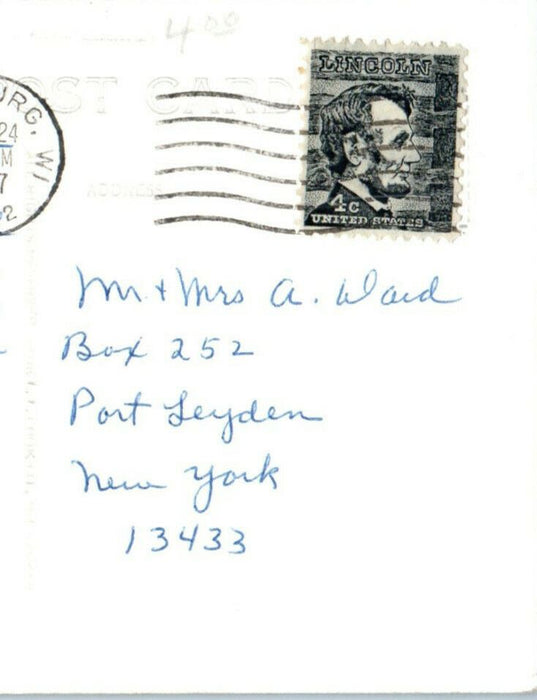 4.00
POST CARD
URG, WI
24
M
7
62
ADDRESS
LINCOLN
4c
UNITED STATES
Mr + Mrs A. Ward
Box 252
Port Leyden
New York
13433